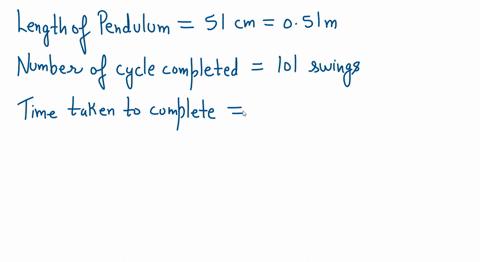 Length of Pendulum = 51 cm = 0.51m
Number of cycle completed = 101 swings
Time taken to complete =